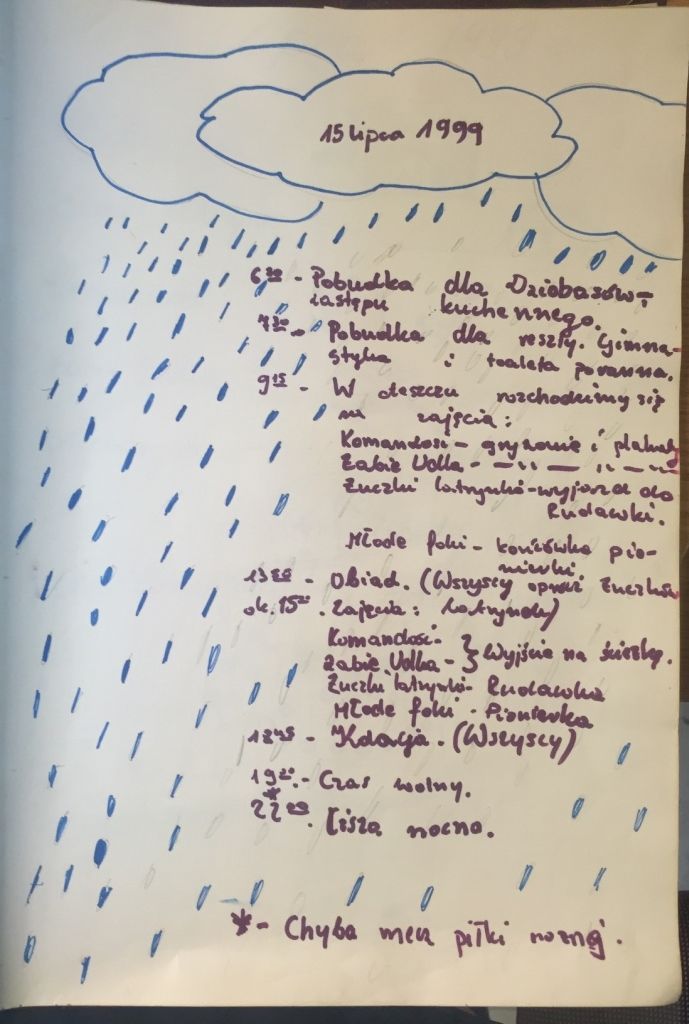 15 lipca 1999
6³⁰ - Pobudka dla Dziobasów -
zastępu kuchennego.
7³⁰ - Pobudka dla reszty. Gimna-
styka i toaleta poranna.
9¹⁵ - W deszczu rozchodzimy się
na zajęcia:
Komandosi - gryzanie i plakaty
Żabie Udka - — " — " — " —
Żuczki Latrynki - wyjazd do
Rudawki.
Młode foki - końcówka pio-
nierki.
13⁰⁰ - Obiad. (Wszyscy oprócz Żuczków
ok. 15⁰⁰. Zajęcia: Latrynek)
Komandosi -
Żabie Udka - } Wyjście na ścieżkę.
Żuczki Latrynki - Rudawka
Młode foki - Pionierka
18⁴⁵ - Kolacja. (Wszyscy)
19²⁰ - Czas wolny.
*
22⁰⁰. Cisza nocna.
* - Chyba mecz piłki nożnej.